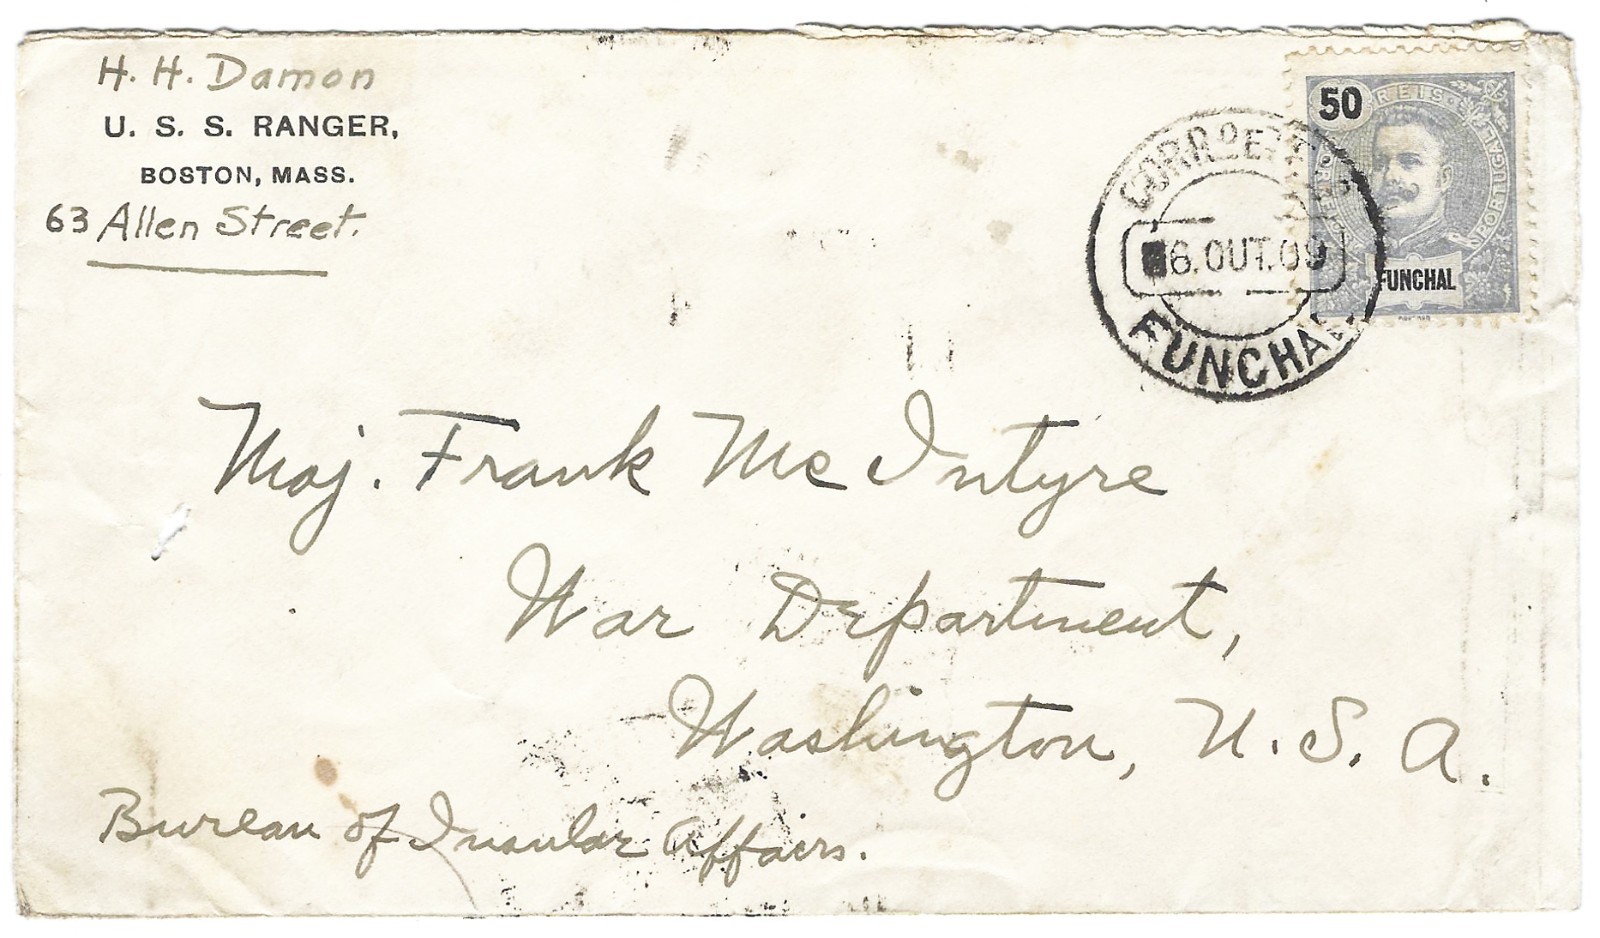 H. H. Damon
U. S. S. RANGER,
BOSTON, MASS.
63 Allen Street.
50 REIS
PORTUGAL
FUNCHAL
6. OUT. 09
FUNCHAL
Maj. Frank McIntyre
War Department,
Washington, U. S. A.
Bureau of Insular Affairs.